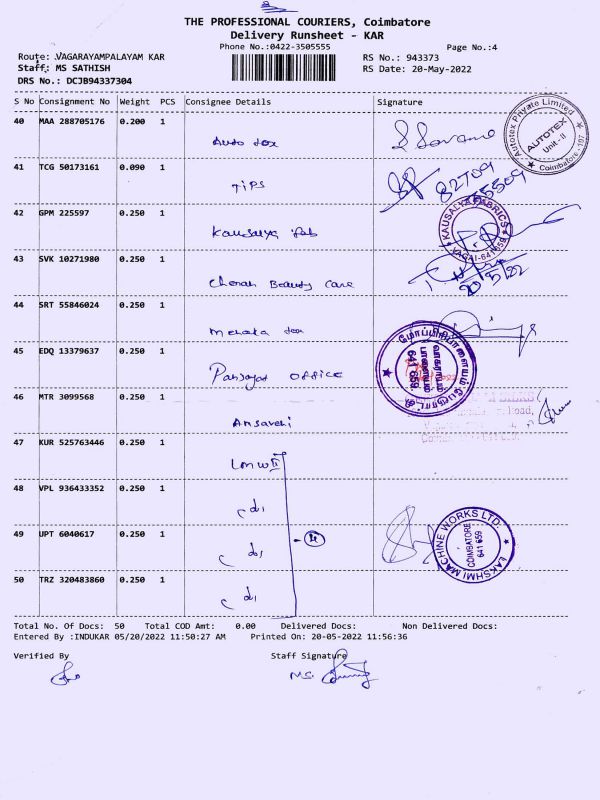 THE PROFESSIONAL COURIERS, Coimbatore
Delivery Runsheet - KAR
Phone No.:0422-3505555
Page No.:4
Route: VAGARAYAMPALAYAM KAR
RS No.: 943373
Staff: MS SATHISH
RS Date: 20-May-2022
DRS No.: DCJB94337304
S No Consignment No Weight PCS Consignee Details Signature
40 MAA 288705176 0.200 1
Auto tex
Autotex Private Limited
AUTOTEX
Unit-II
Coimbatore
41 TCG 50173161 0.090 1
TIPS
82709
42 GPM 225597 0.250 1
Kausalya Fab
KAUSALYA FABRICS
VAGAI-641 659
43 SVK 10271980 0.250 1
Chenah Beauty Care
20/5/22
44 SRT 55846024 0.250 1
Mehata tex
45 EDQ 13379637 0.250 1
Panjayat OFFICE
641 659.
46 MTR 3099568 0.250 1
Ansavehi
Road,
47 KUR 525763446 0.250 1
LMW II
48 VPL 936433352 0.250 1
do
49 UPT 6040617 0.250 1
do
4
LAKSHMI MACHINE WORKS LTD.
COIMBATORE
641 659
50 TRZ 320483860 0.250 1
do
Total No. Of Docs: 50 Total COD Amt: 0.00 Delivered Docs: Non Delivered Docs:
Entered By :INDUKAR 05/20/2022 11:50:27 AM Printed On: 20-05-2022 11:56:36
Verified By
Staff Signature
MS.